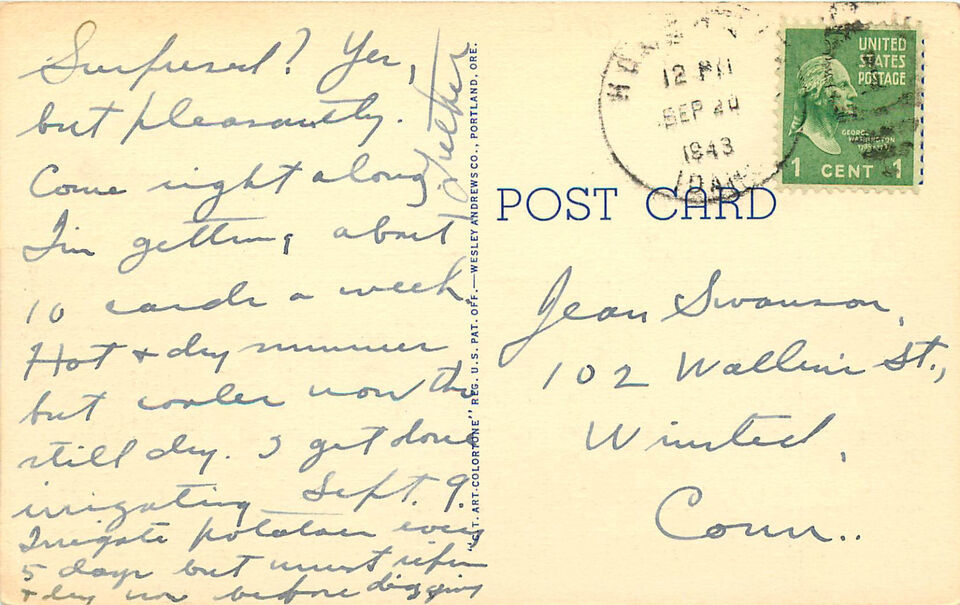 Surprised? Yes,
but pleasantly.
Come right along
I'm getting about
10 cards a week.
Hot & dry summer
but cooler now tho
still dry. I get done
irrigating Sept. 9.
Irrigate potatoes every
5 days but must ripen
& dry now before digging
"C.T. ART-COLORTONE" REG. U.S. PAT. OFF.—WESLEY ANDREWS CO., PORTLAND, ORE.
12 PM
SEP 20
1943
IDAHO
UNITED
STATES
POSTAGE
GEORGE
WASHINGTON
1 CENT 1
POST CARD
Jean Swanson,
102 Wallens St.,
Winsted,
Conn..